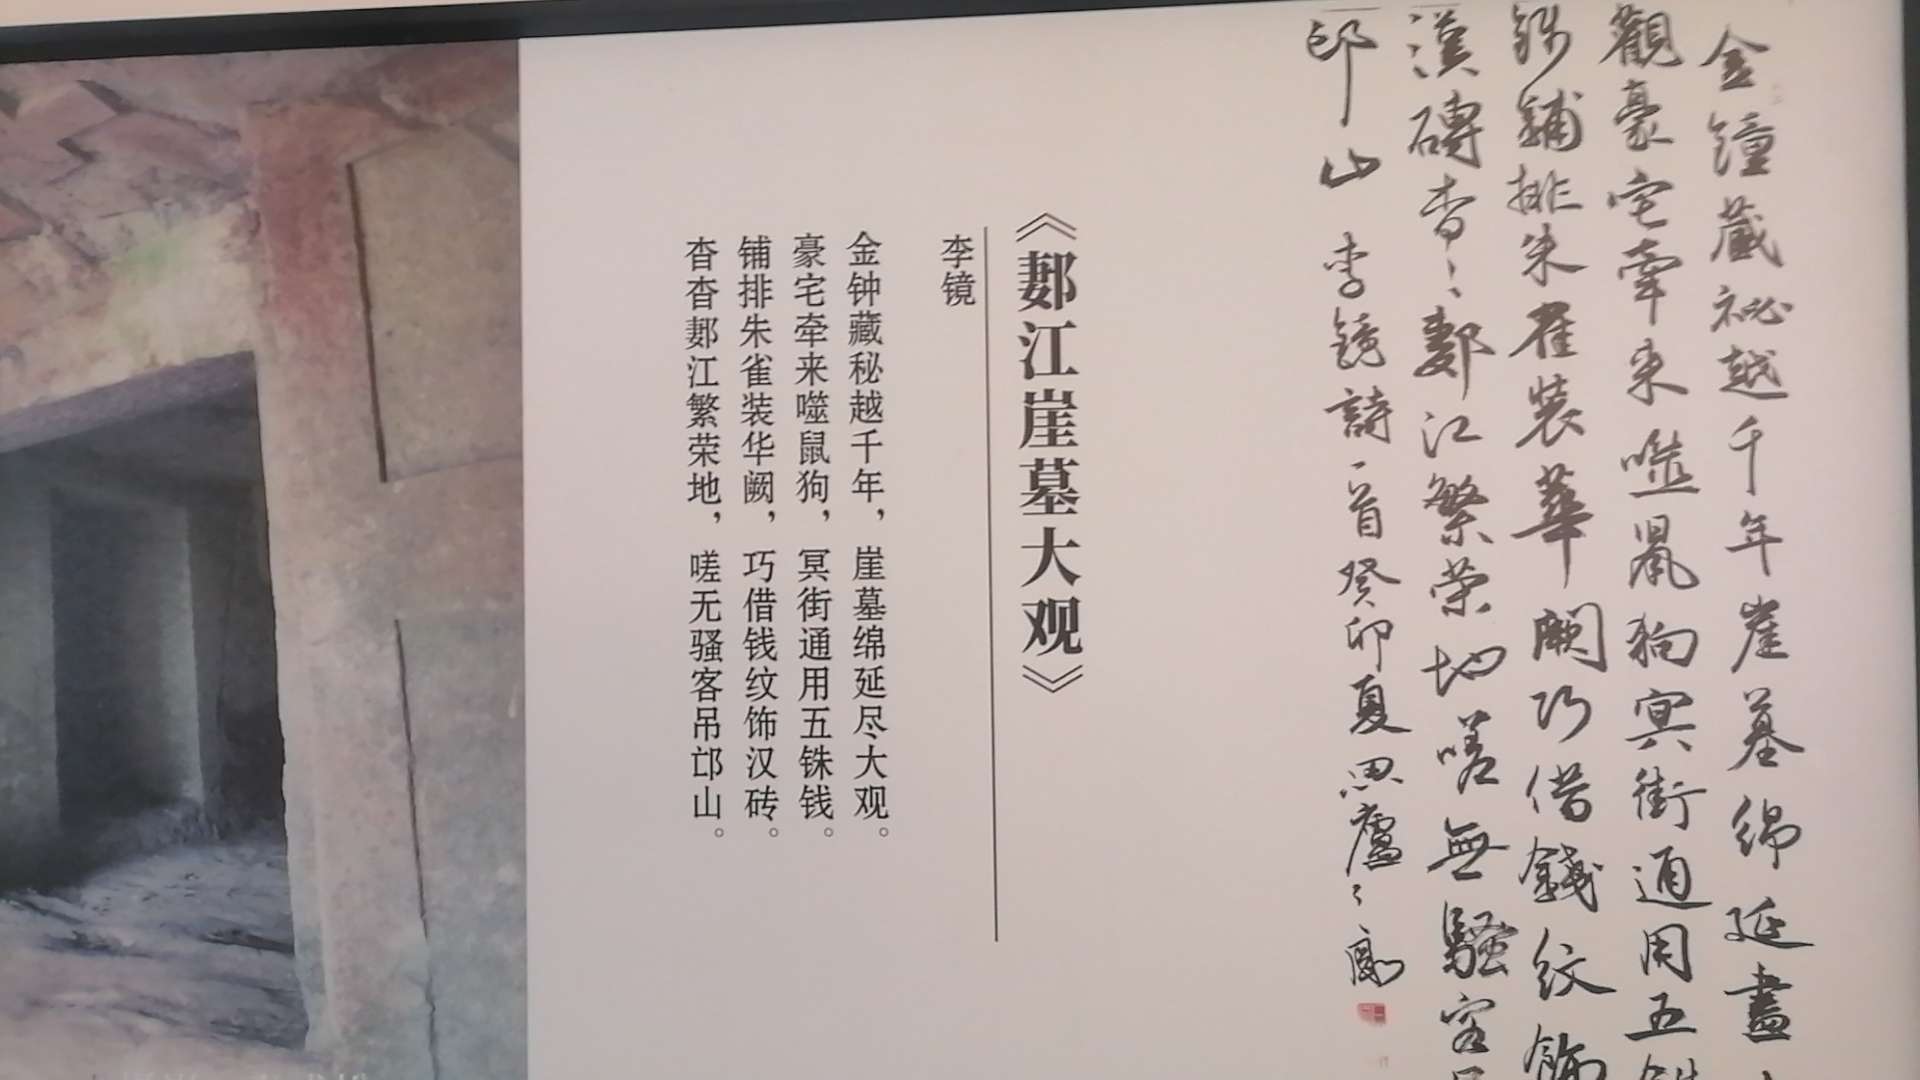 金鐘藏祕越千年崖墓綿延盡
觀豪宅牽来噬鼠狗冥街通用五
錢鋪排朱雀裝華闕巧借錢紋飾
漢磚杳〻郪江繁荣地嗟無騷客
邙山 李鏡詩一首癸卯夏思廬〻
《郪江崖墓大观》
李镜
金钟藏秘越千年，崖墓绵延尽大观。
豪宅牵来噬鼠狗，冥街通用五铢钱。
铺排朱雀装华阙，巧借钱纹饰汉砖。
杳杳郪江繁荣地，嗟无骚客吊邙山。